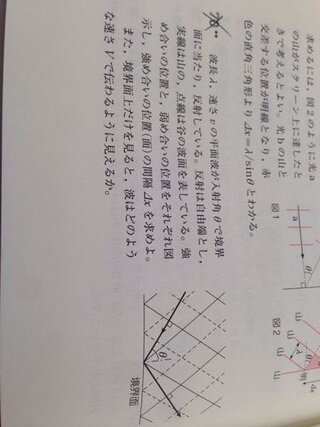 求めるには，図2のように光a
の山がスクリーン上に達したと
きで考えるとよい。光bの山と
交差する位置が明線となり，赤
色の直角三角形より Δx=λ/sinθ とわかる。
図1
a
図2
山
山
山
λ
θ
明
Δx
20**
波長λ，速さvの平面波が入射角θで境界
面に当たり，反射している。反射は自由端とし，
実線は山の，点線は谷の波面を表している。強
め合いの位置と，弱め合いの位置をそれぞれ図
示し，強め合いの位置(面)の間隔Δxを求めよ。
また，境界面上だけを見ると，波はどのよう
な速さVで伝わるように見えるか。
θ
境界面